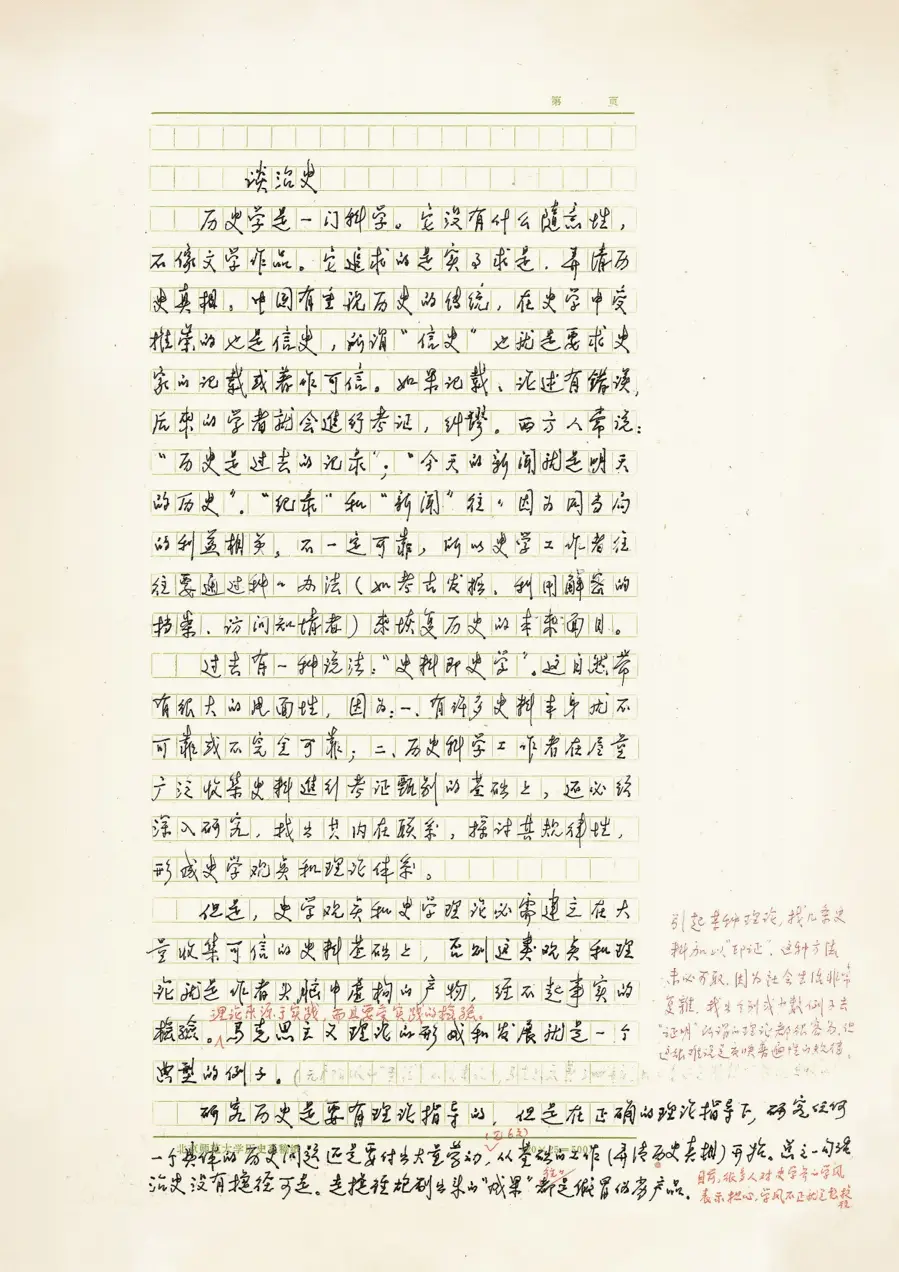 第 页
谈治史
历史学是一门科学。它没有什么随意性，
不像文学作品。它追求的是实事求是，弄清历
史真相。中国有重视历史的传统，在史学中受
推崇的也是信史，所谓“信史”也就是要求史
家的记载或著作可信。如果记载、论述有错误，
后来的学者就会进行考证，纠谬。西方人常说：
“历史是过去的记录”；“今天的新闻就是明天
的历史”。“纪录”和“新闻”往往因为同当局
的利益相关，不一定可靠，所以史学工作者往
往要通过种种办法（如考古发掘、利用解密的
档案、访问知情者）来恢复历史的本来面目。
过去有一种说法：“史料即史学”。这自然带
有很大的片面性，因为：一、有许多史料本身就不
可靠或不完全可靠；二、历史科学工作者在尽量
广泛收集史料进行考证甄别的基础上，还必须
深入研究，找出其内在联系，探讨其规律性，
形成史学观点和理论体系。
但是，史学观点和史学理论必需建立在大
量收集可信的史料基础上，否则这类观点和理
论就是作者头脑中虚构的产物，经不起事实的
理论来源于实践，而且要受实践的检验。
检验。马克思主义理论的形成和发展就是一个
典型的例子。
引起某种理论，找几条史
料加以“印证”，这种方法
未必可取，因为社会生活非常
复杂，找出个别或少数例子去
“证明”所谓的理论都很容易，但
这很难说是反映普遍性的规律。
研究历史是要有理论指导的，但是在正确的理论指导下，研究任何
北京师范大学历史系稿纸
一个具体的历史问题还是要付出大量劳动，从基础的工作（弄清历史真相）开始。总之一句话
治史没有捷径可走。走捷径炮制出来的“成果”都是假冒伪劣产品。
目前，很多人对史学界的学风
表示担心，学风不正就是